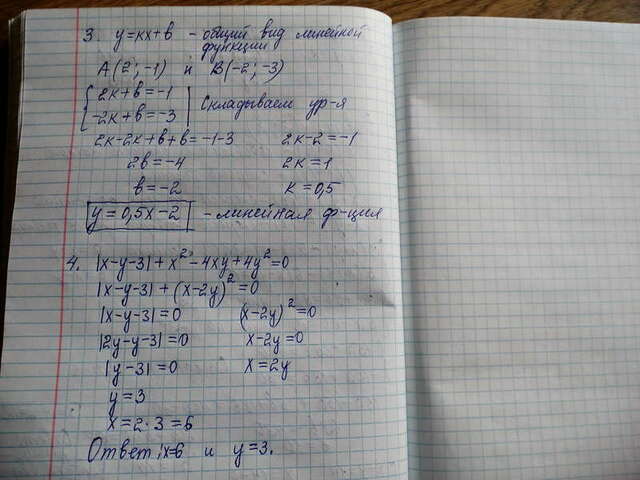 3. y=kx+b - общий вид линейной
функции
A(2;-1) и B(-2;-3)
{2k+b=-1
{-2k+b=-3 | Складываем ур-я
2k-2k+b+b=-1-3 2k-2=-1
2b=-4 2k=1
b=-2 k=0,5
y=0,5x-2 - линейная ф-ция
4. |x-y-3|+x²-4xy+4y²=0
|x-y-3|+(x-2y)²=0
|x-y-3|=0 (x-2y)²=0
|2y-y-3|=0 x-2y=0
|y-3|=0 x=2y
y=3
x=2·3=6
Ответ: x=6 и y=3.